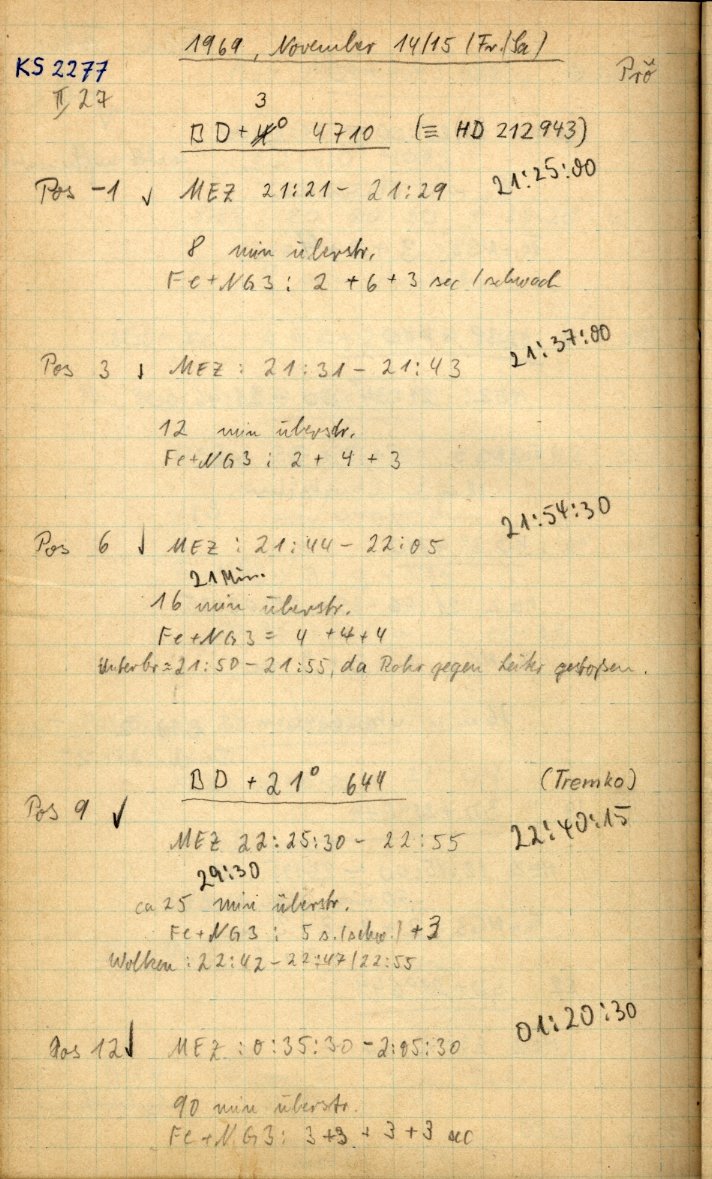 1969, November 14/15 (Fr./Sa)
KS 2277
Prö
II/27
3
BD+4° 4710 (≡ HD 212943)
Pos -1 ✓ MEZ 21:21 - 21:29 21:25:00
8 min überstr.
Fe+NG3: 2 + 6 + 3 sec / schwach
Pos 3 ✓ MEZ: 21:31 - 21:43 21:37:00
12 min überstr.
Fe+NG3: 2 + 4 + 3
Pos 6 ✓ MEZ: 21:44 - 22:05 21:54:30
21 Min.
16 min überstr.
Fe+NG3 = 4 + 4 + 4
Unterbr = 21:50 - 21:55, da Rohr gegen Leiter gestoßen.
BD + 21° 644 (Tremko)
Pos 9 ✓
MEZ 22:25:30 - 22:55 22:40:15
29:30
ca 25 min überstr.
Fe+NG3: 5 s. (schw.) + 3
Wolken: 22:42 - 22:47 / 22:55
Pos 12 ✓ MEZ: 0:35:30 - 2:05:30 01:20:30
90 min überstr.
Fe+NG3: 3+3 + 3+3 sec